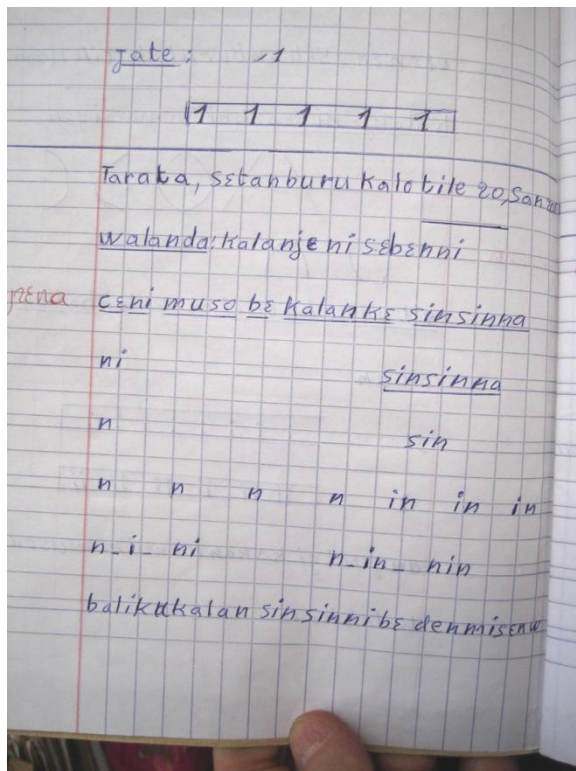 jate : 1
1 1 1 1 1
Tarata, sɛtanburu kalo tile 20, san
walanda: kalanjɛ ni sɛbɛnni
pɛna cɛni muso bɛ kalankɛ sinsinna
ni sinsinna
n sin
n n n n in in in
n_i_ ni n_in_ nin
balikukalan sinsinni bɛ denmisɛnw